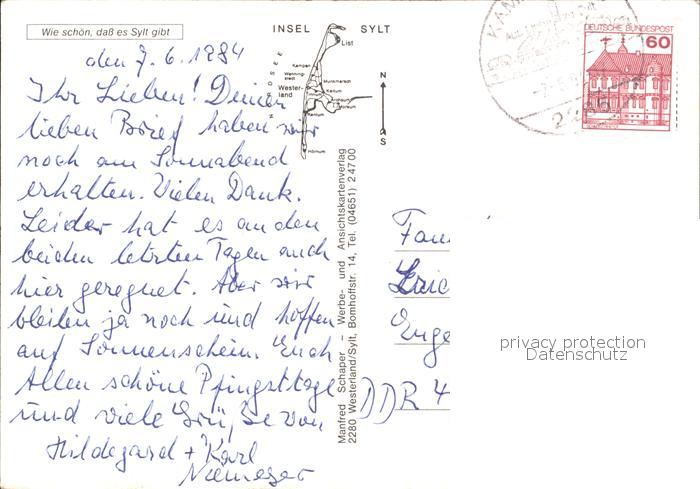 Wie schön, daß es Sylt gibt
den 7.6.1984
Ihr Lieben! Deinen
lieben Brief haben wir
noch am Sonnabend
erhalten. Vielen Dank.
Leider hat es an den
beiden letzten Tagen auch
hier geregnet. Aber wir
bleiben ja noch und hoffen
auf Sonnenschein. Euch
Allen schöne Pfingsttage
und viele Grüße von
Hildegard + Karl
INSEL SYLT
List
Kampen
Westerland
Hörnum
N
S
Manfred Schaper – Werbe- und Ansichtskartenverlag
2280 Westerland/Sylt, Bomhoffstr. 14, Tel. (04651) 2 47 00
DEUTSCHE BUNDESPOST
60
Fam
DDR 4
privacy protection
Datenschutz